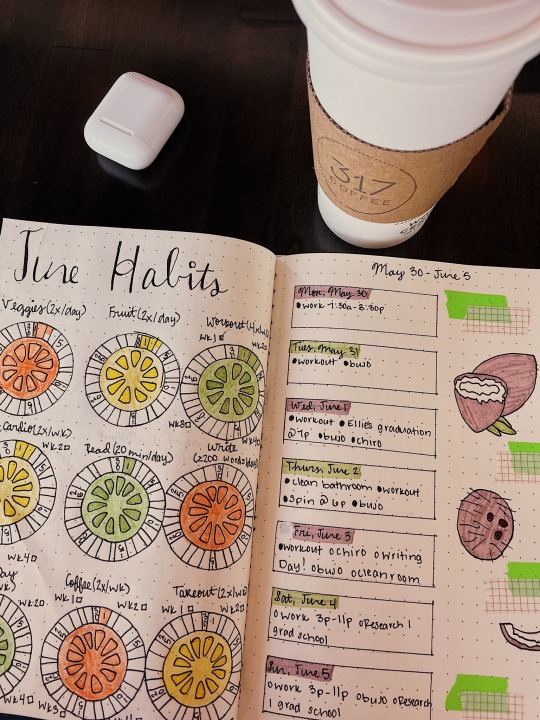 317
COFFEE
June Habits
Veggies (2x/day)
Fruit (2x/day)
Workout (4x/wk)
wk1□ wk2□
wk3□ wk4□
Cardio (2x/wk)
wk2□
wk4□
Read (20 min/day)
Write
(≥200 words/day)
Coffee (2x/wk)
wk1□ wk2□
wk3□
Takeout (2x/wk)
wk1□ wk2□
May 30 - June 5
Mon, May 30
•work 7:30a-8:30p
Tues, May 31
•workout •bujo
Wed, June 1
•workout •Ellie's graduation
@7p •bujo •chiro
Thurs, June 2
•clean bathroom •workout
•Spin @ 6p •bujo
Fri, June 3
•workout ochiro owriting
Day! obujo oclean room
Sat, June 4
owork 3p-11p oResearch 1
grad school
Sun, June 5
owork 3p-11p obujo oResearch
1 grad school